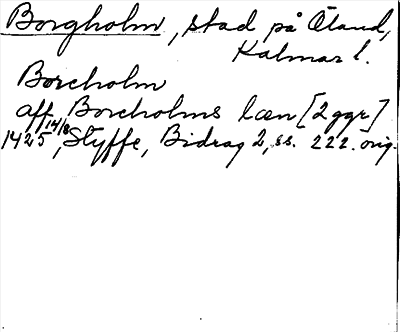 Borgholm, stad på Öland,
Kalmar l.
Borcholm
aff Borcholms læn [2 ggr]
1425 14/8, Styffe, Bidrag 2, s. 222. orig.